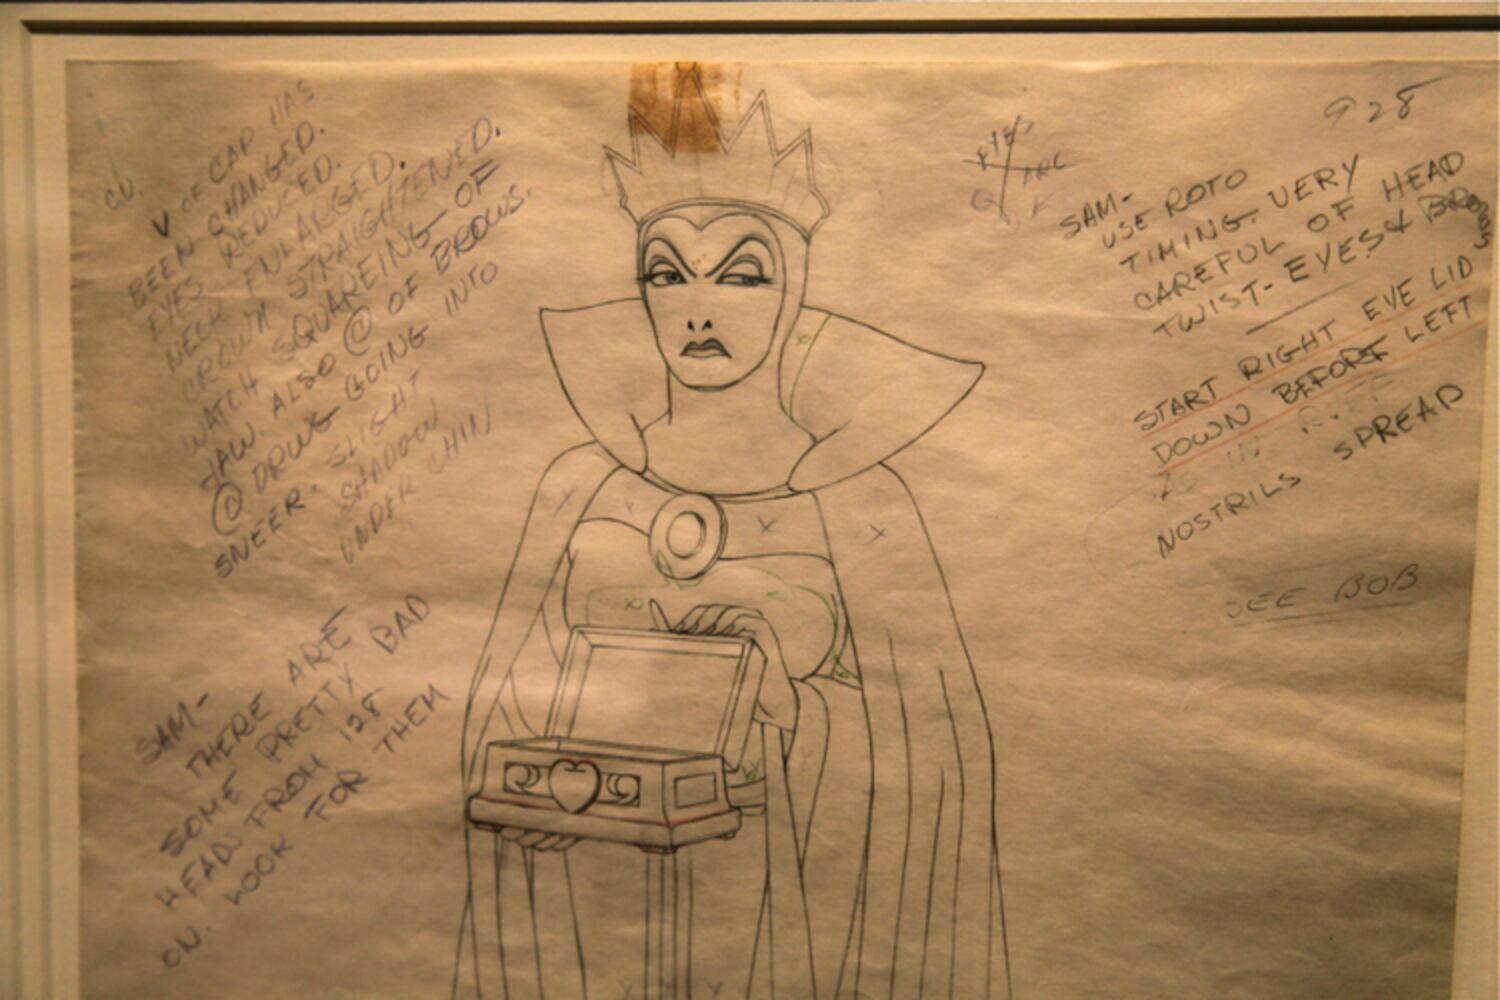 C.U.
V OF CAP HAS
BEEN CHANGED.
EYES REDUCED.
NECK ENLARGED.
CROWN STRAIGHTENED.
WATCH SQUAREING OF
JAW. ALSO @ OF BROWS.
@ DRWG GOING INTO
SNEER. SLIGHT
SHADOW
UNDER CHIN
SAM-
THERE ARE
SOME PRETTY BAD
HEADS FROM 128
ON. LOOK FOR THEM
EYES
ARC
928
SAM-
USE ROTO
TIMING. VERY
CAREFUL OF HEAD
TWIST-EYES & BROWS
START RIGHT EYE LID
DOWN BEFORE LEFT
NOSTRILS SPREAD
SEE BOB